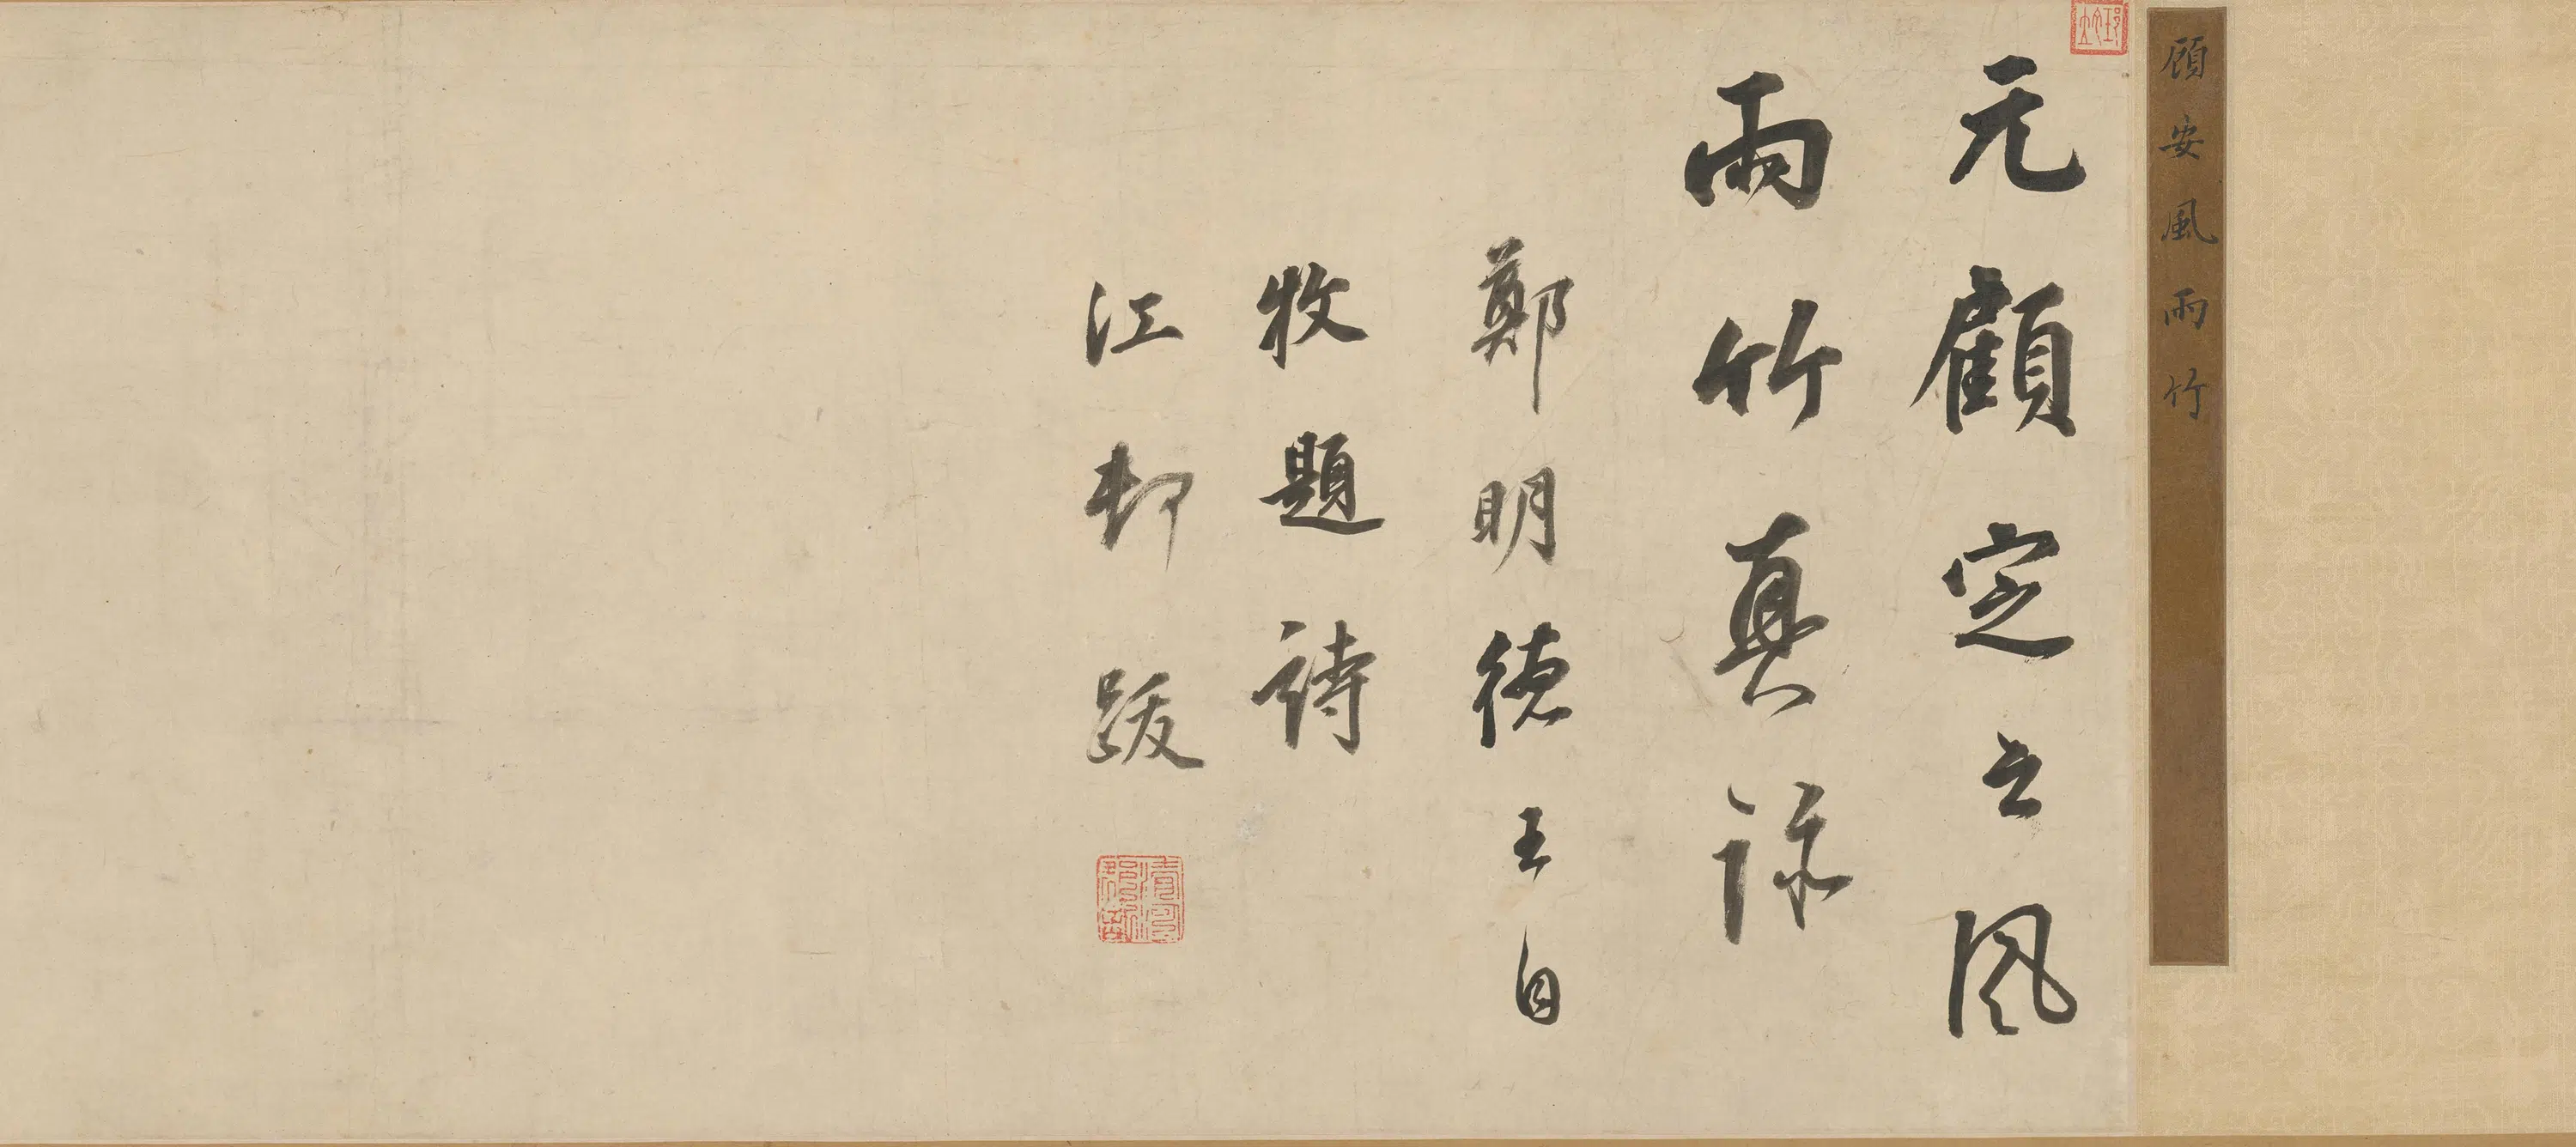 顧安風雨竹
元顧定之風
雨竹真跡
鄭明德王自
牧題詩
江邨跋